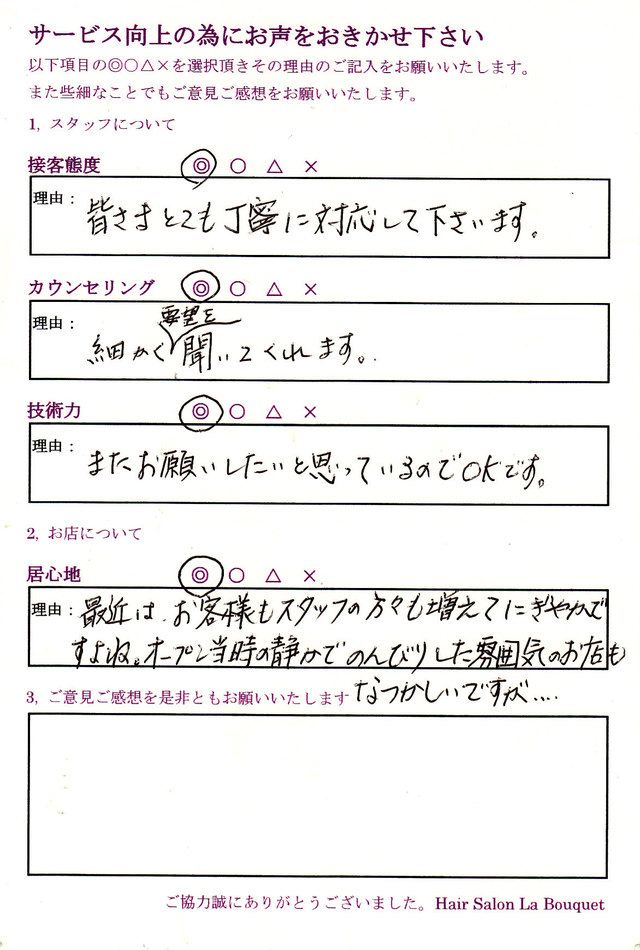 サービス向上の為にお声をおきかせ下さい
以下項目の◎○△×を選択頂きその理由のご記入をお願いいたします。
また些細なことでもご意見ご感想をお願いいたします。
1, スタッフについて
接客態度 ◎ ○ △ ×
理由：
皆さまとても丁寧に対応して下さいます。
カウンセリング ◎ ○ △ ×
理由：
要望を
細かく聞いてくれます。
技術力 ◎ ○ △ ×
理由：
またお願いしたいと思っているのでOKです。
2, お店について
居心地 ◎ ○ △ ×
理由：
最近は、お客様もスタッフの方々も増えてにぎやかで
すよね。オープン当時の静かでのんびりした雰囲気のお店も
なつかしいですが....
3, ご意見ご感想を是非ともお願いいたします
ご協力誠にありがとうございました。Hair Salon La Bouquet